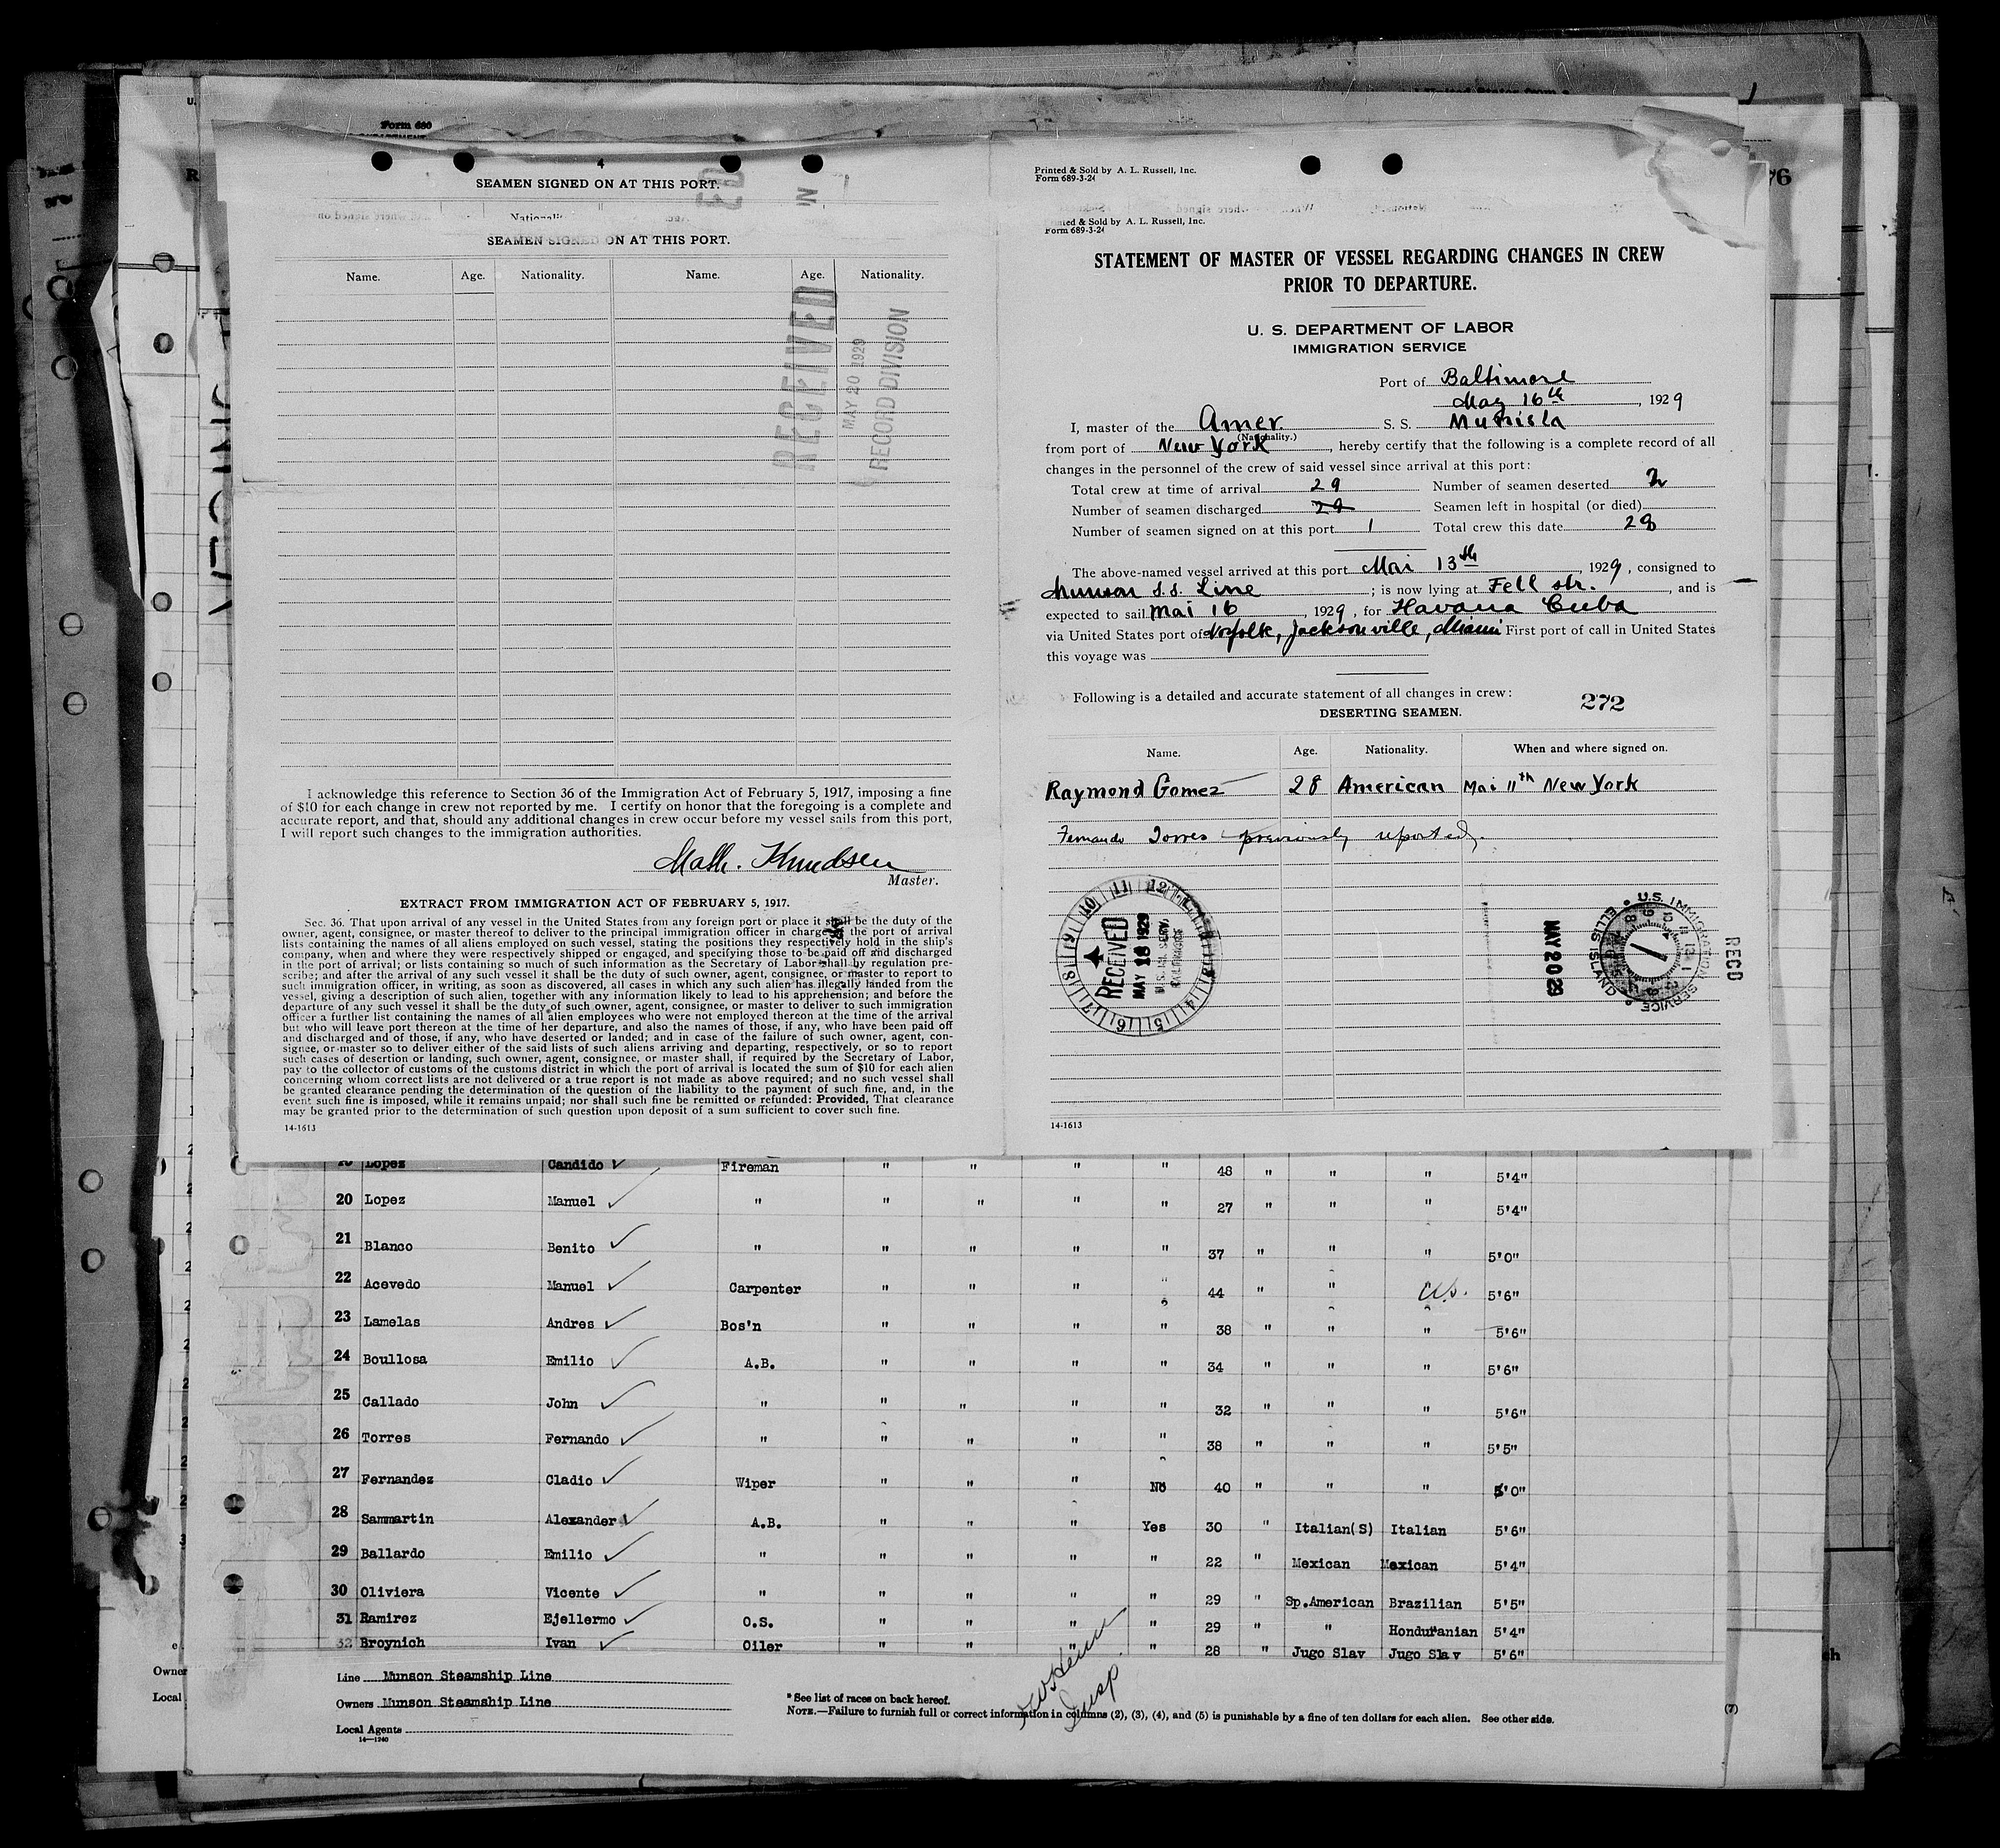 Form 680
4
SEAMEN SIGNED ON AT THIS PORT.
SEAMEN SIGNED ON AT THIS PORT.
Name. Age. Nationality. Name. Age. Nationality.
RECEIVED
MAY 20 1929
RECORD DIVISION
I acknowledge this reference to Section 36 of the Immigration Act of February 5, 1917, imposing a fine
of $10 for each change in crew not reported by me. I certify on honor that the foregoing is a complete and
accurate report, and that, should any additional changes in crew occur before my vessel sails from this port,
I will report such changes to the immigration authorities.
Math. Knudsen
Master.
EXTRACT FROM IMMIGRATION ACT OF FEBRUARY 5, 1917.
Sec. 36. That upon arrival of any vessel in the United States from any foreign port or place it shall be the duty of the
owner, agent, consignee, or master thereof to deliver to the principal immigration officer in charge of the port of arrival
lists containing the names of all aliens employed on such vessel, stating the positions they respectively hold in the ship's
company, when and where they were respectively shipped or engaged, and specifying those to be paid off and discharged
in the port of arrival; or lists containing so much of such information as the Secretary of Labor shall by regulation pre-
scribe; and after the arrival of any such vessel it shall be the duty of such owner, agent, consignee, or master to report to
such immigration officer, in writing, as soon as discovered, all cases in which any such alien has illegally landed from the
vessel, giving a description of such alien, together with any information likely to lead to his apprehension; and before the
departure of any such vessel it shall be the duty of such owner, agent, consignee, or master to deliver to such immigration
officer a further list containing the names of all alien employees who were not employed thereon at the time of the arrival
but who will leave port thereon at the time of her departure, and also the names of those, if any, who have been paid off
and discharged and of those, if any, who have deserted or landed; and in case of the failure of such owner, agent, con-
signee, or master so to deliver either of the said lists of such aliens arriving and departing, respectively, or so to report
such cases of desertion or landing, such owner, agent, consignee, or master shall, if required by the Secretary of Labor,
pay to the collector of customs of the customs district in which the port of arrival is located the sum of $10 for each alien
concerning whom correct lists are not delivered or a true report is not made as above required; and no such vessel shall
be granted clearance pending the determination of the question of the liability to the payment of such fine, and, in the
event such fine is imposed, while it remains unpaid; nor shall such fine be remitted or refunded: Provided, That clearance
may be granted prior to the determination of such question upon deposit of a sum sufficient to cover such fine.
14-1613
Printed & Sold by A. L. Russell, Inc.
Form 689-3-24
& Sold by A. L. Russell, Inc.
Form 689-3-24
STATEMENT OF MASTER OF VESSEL REGARDING CHANGES IN CREW
PRIOR TO DEPARTURE.
U. S. DEPARTMENT OF LABOR
IMMIGRATION SERVICE
Port of Baltimore
May 16th, 1929
I, master of the Amer. S. S. Munisla
(Nationality.)
from port of New York, hereby certify that the following is a complete record of all
changes in the personnel of the crew of said vessel since arrival at this port:
Total crew at time of arrival 29 Number of seamen deserted 2
Number of seamen discharged 29 Seamen left in hospital (or died)
Number of seamen signed on at this port 1 Total crew this date 28
The above-named vessel arrived at this port Mai 13th, 1929, consigned to
Munson S.S. Line; is now lying at Fell str., and is
expected to sail Mai 16, 1929, for Havana Cuba
via United States port of Norfolk, Jacksonville, Miami First port of call in United States
this voyage was
Following is a detailed and accurate statement of all changes in crew: 272
DESERTING SEAMEN.
Name. Age. Nationality. When and where signed on.
Raymond Gomez 28 American Mai 11th New York
Fernando Torres previously reported.
RECEIVED
MAY 18 1929
MAY 20 29
U.S. IMMIGRATION SERVICE ELLIS ISLAND
RECD
14-1613
19 Lopez Candido Fireman " " " " 48 " " " 5'4"
20 Lopez Manuel " " " " " 27 " " " 5'4"
21 Blanco Benito " " " " " 37 " " " 5'0"
22 Acevedo Manuel Carpenter " " " " 44 " " U.S. 5'6"
23 Lamelas Andres Bos'n " " " " 38 " " " 5'6"
24 Boullosa Emilio A.B. " " " " 34 " " " 5'6"
25 Callado John " " " " " 32 " " " 5'6"
26 Torres Fernando " " " " " 38 " " " 5'5"
27 Fernandez Cladio Wiper " " " No 40 " " " 5'0"
28 Sammartin Alexander A.B. " " " Yes 30 " Italian(S) Italian 5'6"
29 Ballardo Emilio " " " " " 22 " Mexican Mexican 5'4"
30 Oliviera Vicente " " " " " 29 " Sp.American Brazilian 5'5"
31 Ramirez Ejellermo O.S. " " " " 29 " " Honduranian 5'4"
32 Broynich Ivan Oiler " " " " 28 " Jugo Slav Jugo Slav 5'6"
Line Munson Steamship Line
Owners Munson Steamship Line
Local Agents
14—1240
* See list of races on back hereof.
NOTE.—Failure to furnish full or correct information in columns (2), (3), (4), and (5) is punishable by a fine of ten dollars for each alien. See other side.
Insp
(7)
Owner
Local